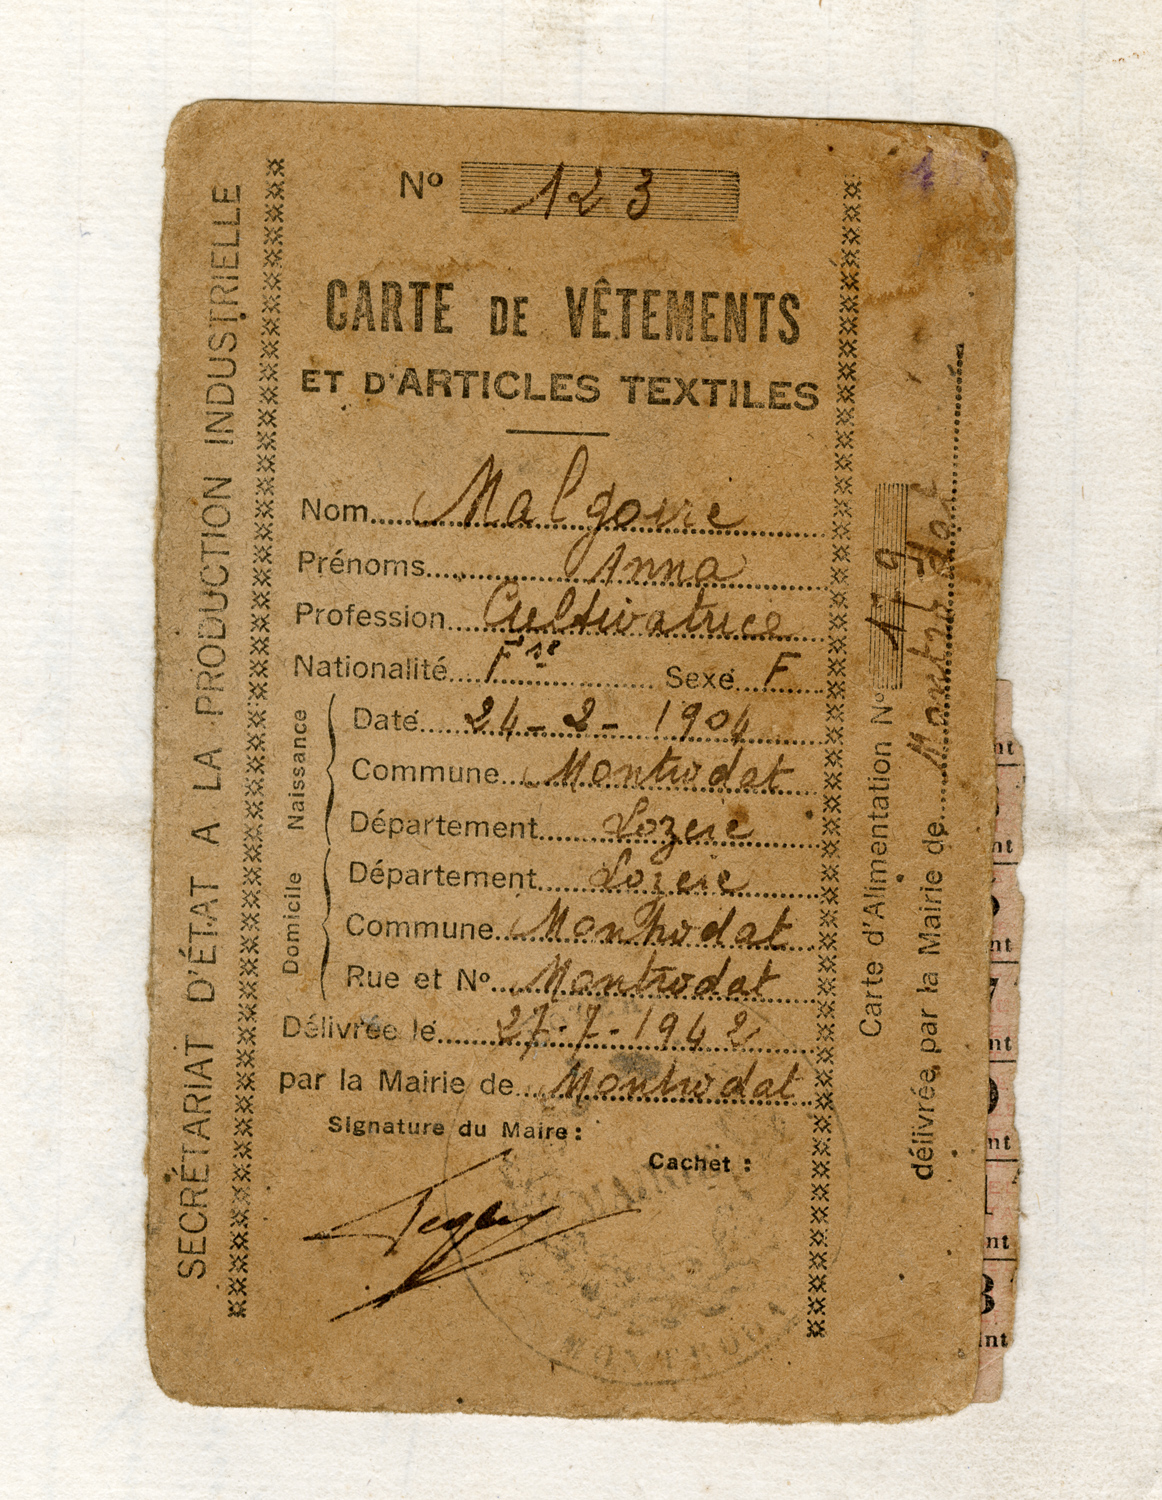 SECRÉTARIAT D'ÉTAT A LA PRODUCTION INDUSTRIELLE
Nº 123
CARTE DE VÊTEMENTS
ET D'ARTICLES TEXTILES
Nom Malgoire
Prénoms Anna
Profession Cultivatrice
Nationalité Fse Sexe F
Naissance
Date 24-2-1904
Commune Montrodat
Département Lozère
Domicile
Département Lozère
Commune Montrodat
Rue et Nº Montrodat
Délivrée le 27-7-1942
par la Mairie de Montrodat
Signature du Maire :
Cachet :
MONTRODAT
Carte d'Alimentation Nº 179
délivrée par la Mairie de Montrodat
nt
nt
nt
7
nt
nt
nt
3
nt